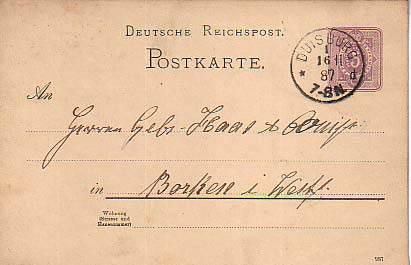 DEUTSCHE REICHSPOST.
POSTKARTE.
DUISBURG
1
16 11
87 d
7-8N.
An
Herren Gebr. Haas &
in Borken i Westf.
Wohnung
(Strasse und
Hausnummer)